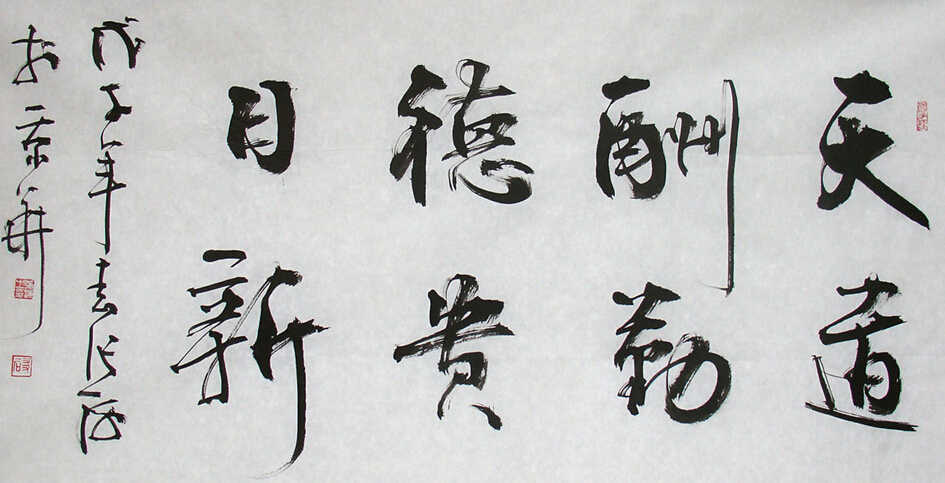 天道
酬勤
德貴
日新
戊子年書
於京華